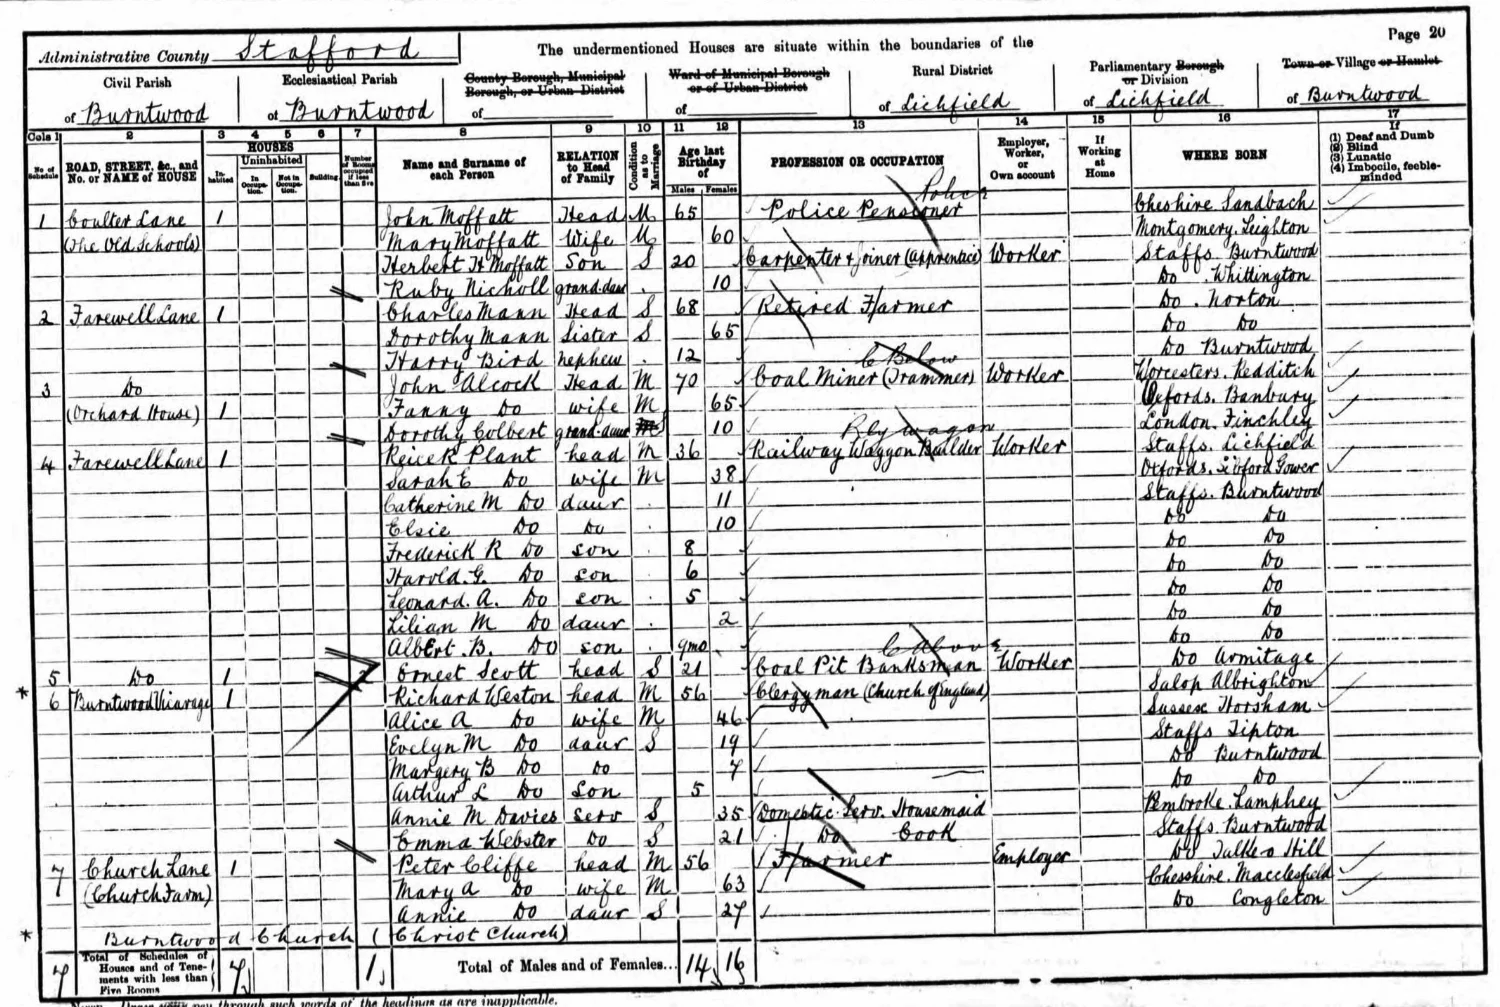 Page 20
Administrative County Stafford
The undermentioned Houses are situate within the boundaries of the
Civil Parish
of Burntwood
Ecclesiastical Parish
of Burntwood
County Borough, Municipal Borough, or Urban District
of
Ward of Municipal Borough or of Urban District
of
Rural District
of Lichfield
Parliamentary Borough or Division
of Lichfield
Town or Village or Hamlet
of Burntwood
Cols 1 2 3 4 5 6 7 8 9 10 11 12 13 14 15 16 17
No. of Schedule
ROAD, STREET, &c., and No. or NAME of HOUSE
HOUSES
Inhabited
Uninhabited
In Occupation.
Not in Occupation.
Building.
Number of Rooms occupied if less than five
Name and Surname of each Person
RELATION to Head of Family
Condition as to Marriage
Age last Birthday of
Males Females
PROFESSION OR OCCUPATION
Employer, Worker, or Own account
If Working at Home
WHERE BORN
If
(1) Deaf and Dumb
(2) Blind
(3) Lunatic
(4) Imbecile, feeble-minded
Police
1 Coulter Lane 1 John Moffatt Head M 65 Police Pensioner Cheshire Sandbach
(The Old Schools) Mary Moffatt Wife M 60 Montgomery. Leighton
Herbert H Moffatt Son S 20 Carpenter & Joiner (Apprentice) Worker Staffs Burntwood
Ruby Nicholl grand-daur 10 Do Whittington
2 Farewell Lane 1 Charles Mann Head S 68 Retired Farmer Do Norton
Dorothy Mann Sister S 65 Do Do
Harry Bird nephew 12 Do Burntwood
C Below
3 Do John Alcock Head M 70 Coal Miner (Drammer) Worker Worcesters. Redditch
(Orchard House) 1 Fanny Do wife M 65 Oxfords. Banbury
Dorothy Colbert grand-daur S 10 London. Finchley
Rly wagon
4 Farewell Lane 1 Plant head M 36 Railway Waggon Builder Worker Staffs. Lichfield
Sarah E Do wife M 38 Oxfords. Gower
Catherine M Do daur 11 Staffs. Burntwood
Elsie Do Do 10 Do Do
Frederick R Do son 8 Do Do
Harold. G. Do son 6 Do Do
Leonard. A. Do son 5 Do Do
Lilian M Do daur 2 Do Do
Albert. B. Do son 9mo Do Do
C Above
5 Do 1 Ernest Scott head S 21 Coal Pit Banksman Worker Do Armitage
* 6 Burntwood Vicarage 1 Richard Weston head M 56 Clergyman (Church of England) Salop Albrighton
Alice A Do wife M 46 Sussex Horsham
Evelyn M Do daur S 19 Staffs Tipton
Margery B Do Do 7 Do Burntwood
Arthur L Do Son 5 Do Do
Annie M Davies serv S 35 Domestic Serv. Housemaid Pembroke. Lamphey
Emma Webster Do S 21 Do Cook Staffs. Burntwood
7 Church Lane 1 Peter Cliffe head M 56 Farmer Employer Do Talke o Hill
(Church Farm) Mary A Do wife M 63 Chesshire. Macclesfield
Annie Do daur S 27 Do Congleton
* Burntwood Church (Christ Church)
7 Total of Schedules of Houses and of Tenements with less than Five Rooms 7 1 Total of Males and of Females... 14 16
through such words of the headings as are inapplicable.